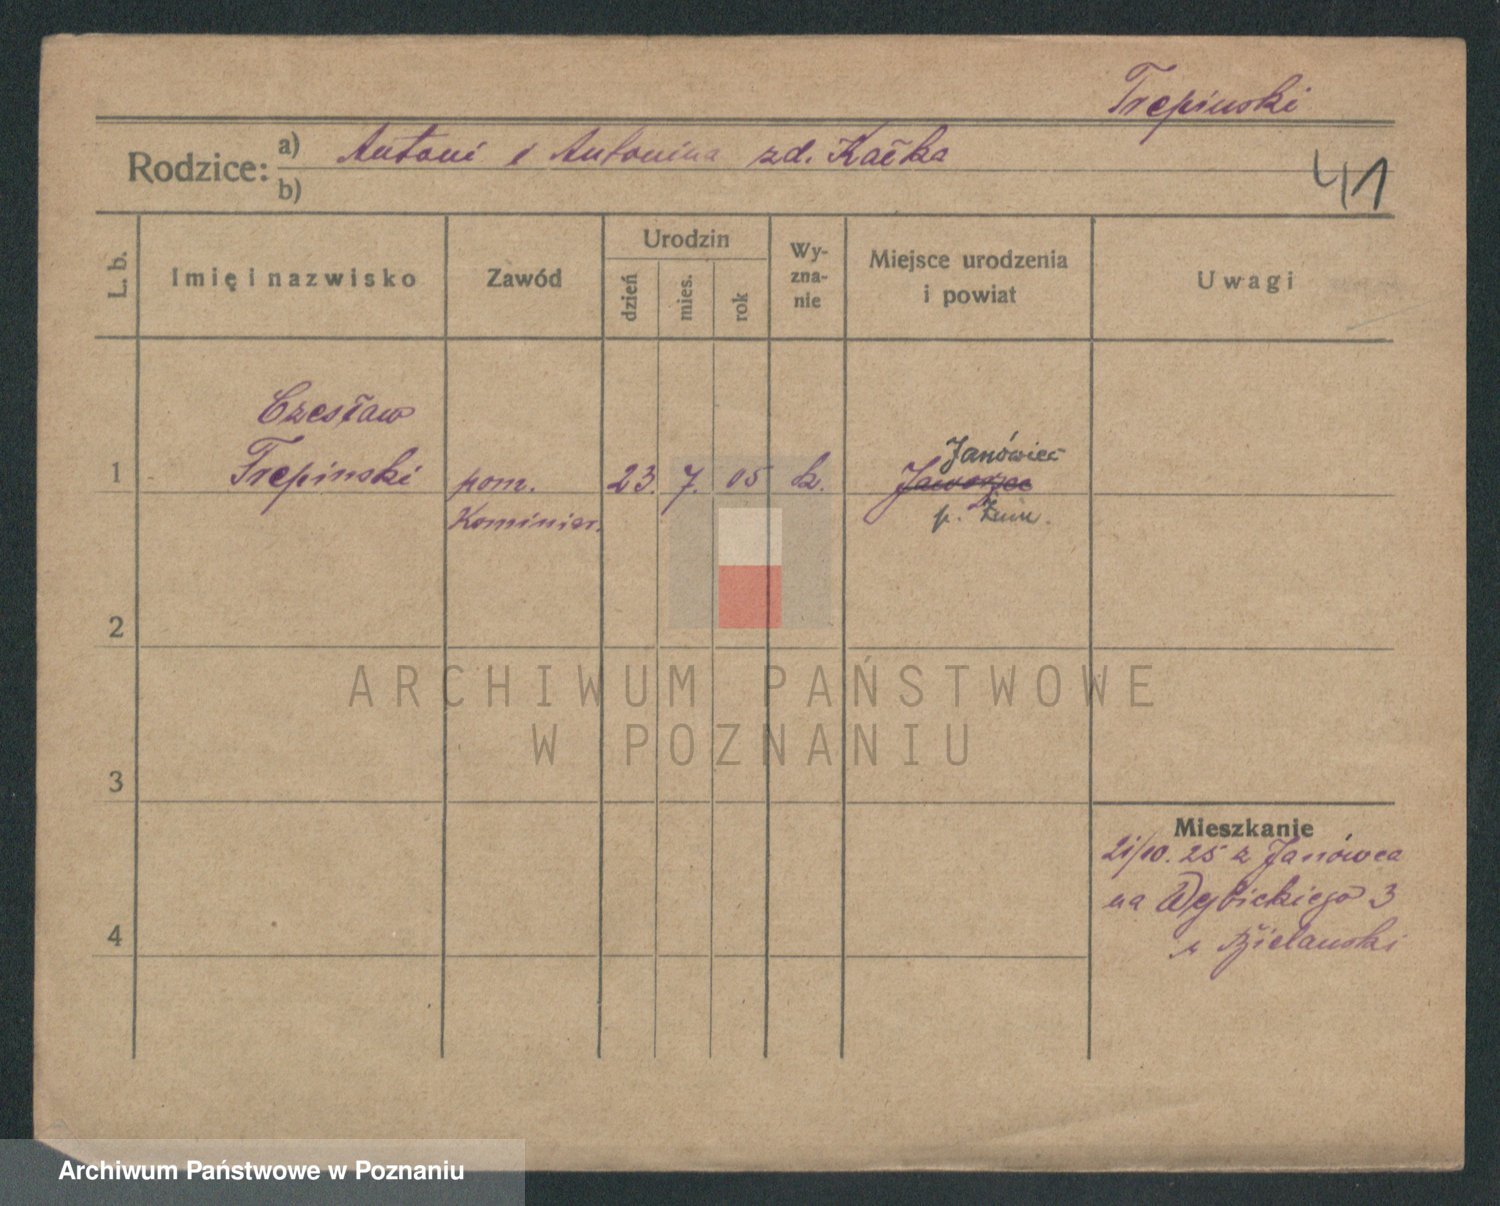 Trepinski
Rodzice: a) Antoni i Antonina zd. Kačka
b)
41
L. b.
Imię i nazwisko
Zawód
Urodzin
dzień
mies.
rok
Wy-
zna-
nie
Miejsce urodzenia
i powiat
Uwagi
Czesław
1 Trepinski pom. 23. 7. 05 k. Janówiec
Kominiar.
p. Żnin.
2
ARCHIWUM PAŃSTWOWE
W POZNANIU
3
Mieszkanie
21/10. 25 z Janówca
na Wybickiego 3
u Bielawski
4
Archiwum Państwowe w Poznaniu